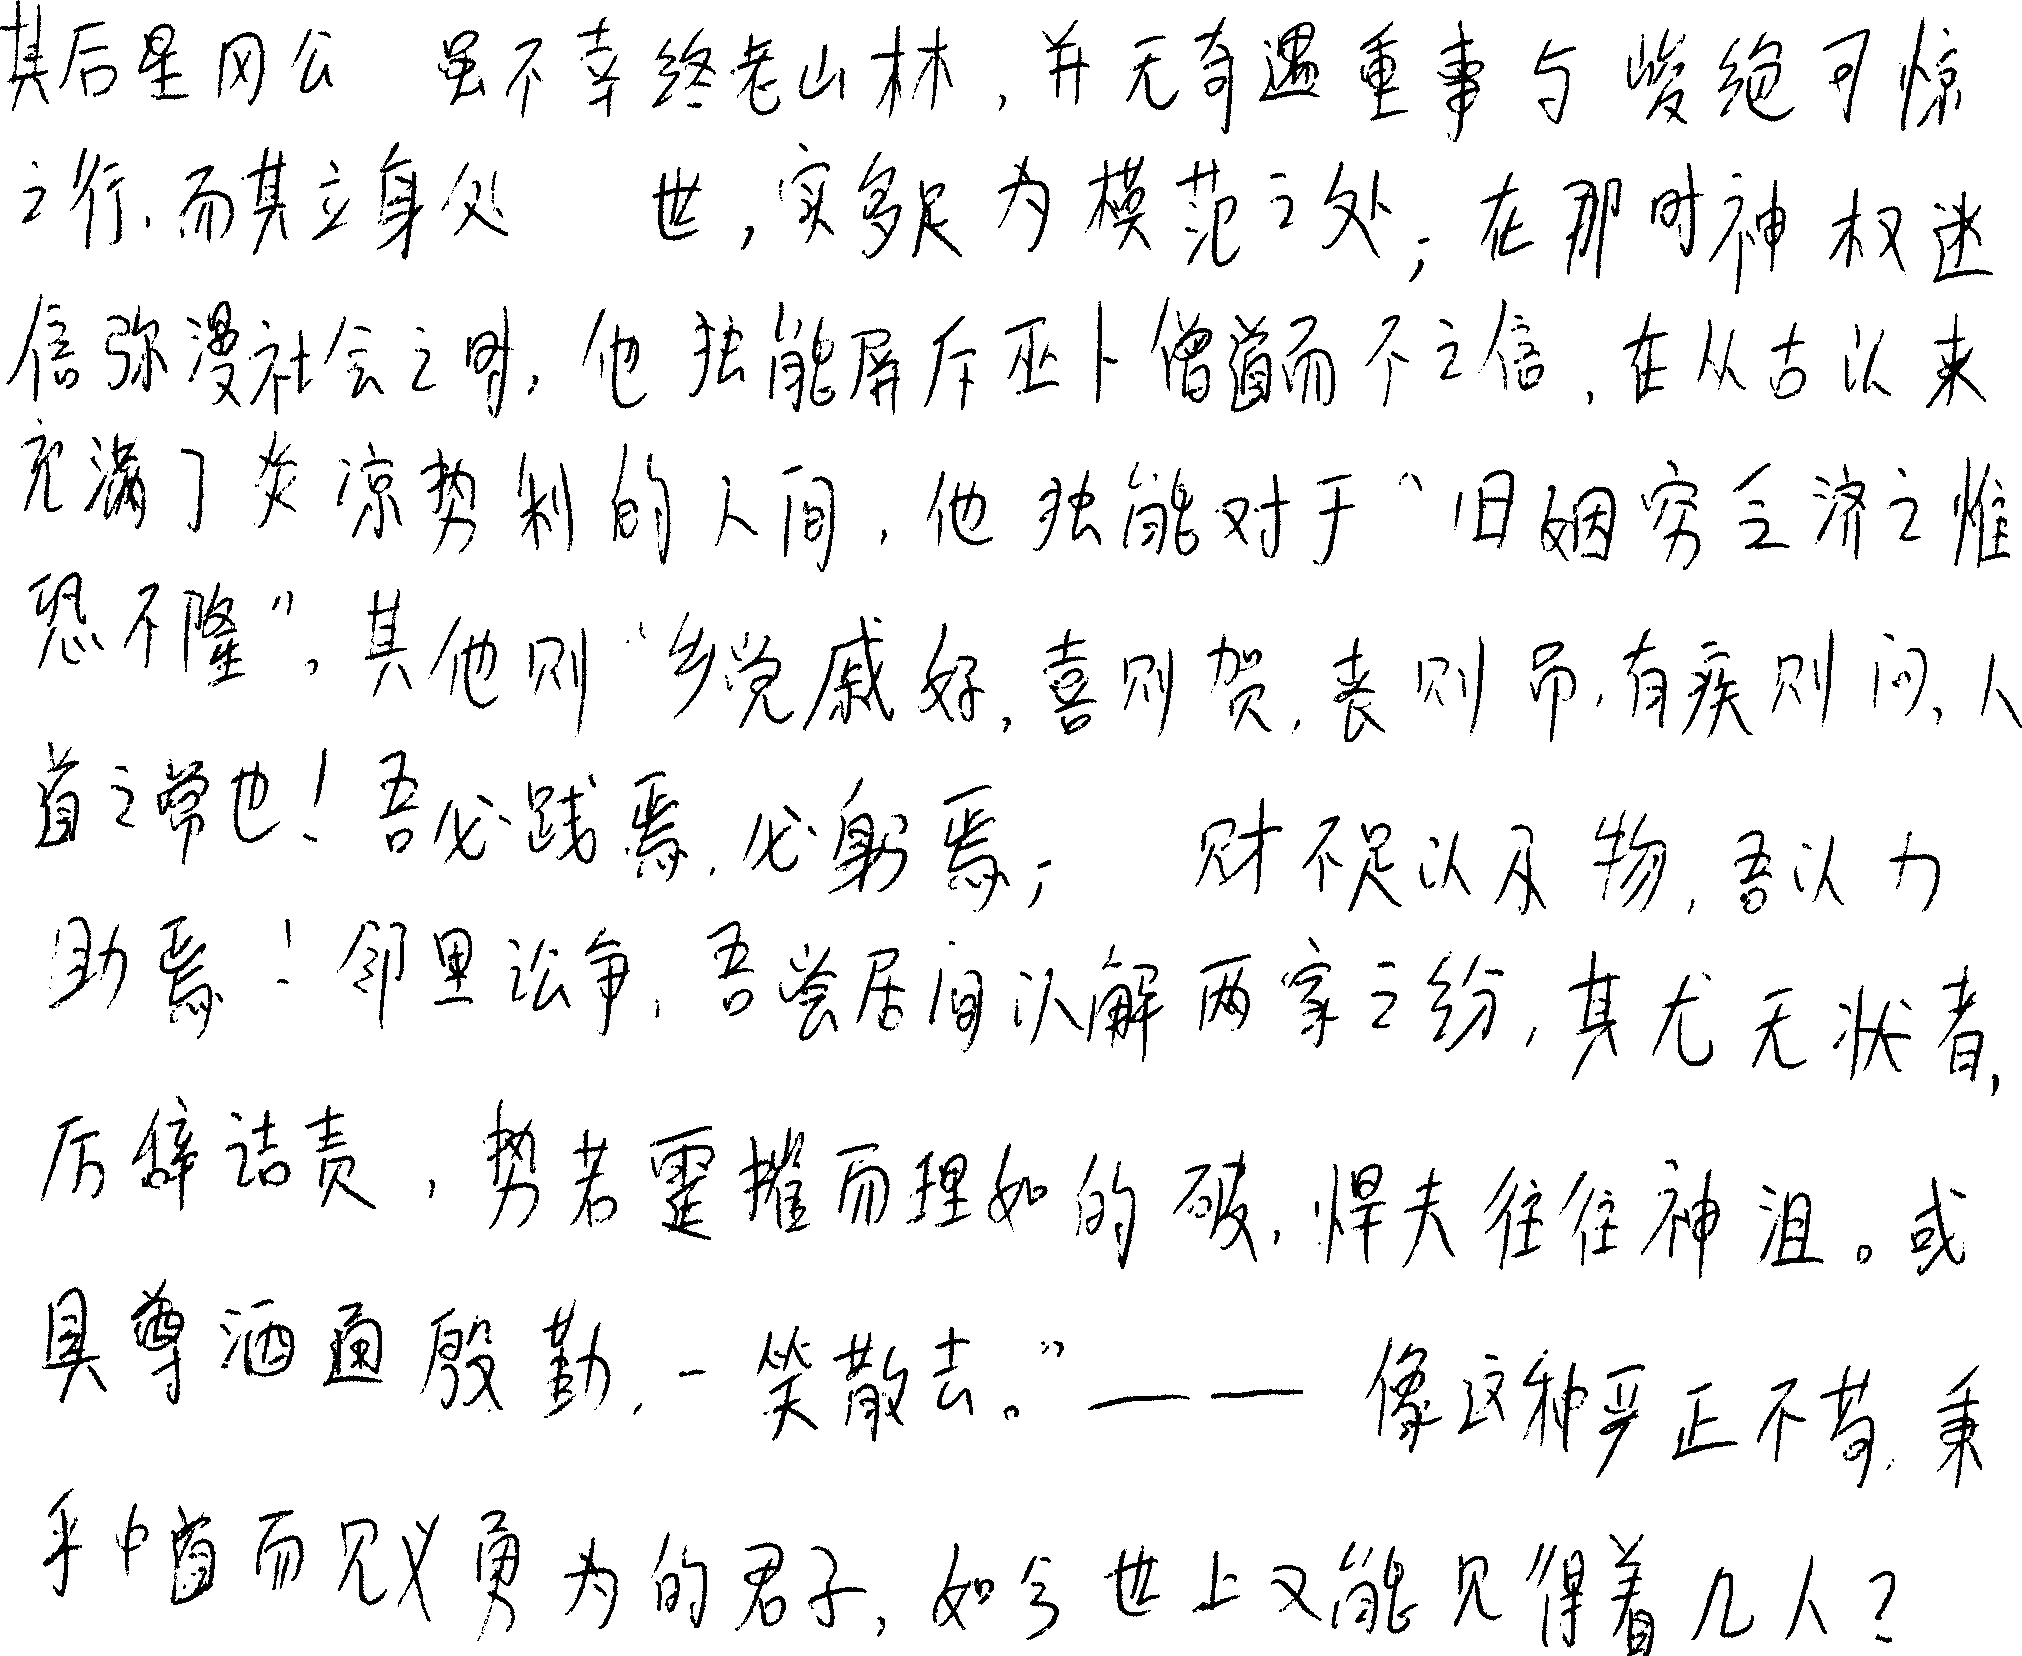 其后星冈公 虽不幸终老山林,并无奇遇重事与峻绝可惊
之行,而其立身处 世,实多足为模范之处;在那时神权迷
信弥漫社会之时,他独能屏斥巫卜僧道而不之信,在从古以来
充满了炎凉势利的人间,他独能对于“旧姻穷乏济之惟
恐不隆”,其他则“乡党戚好,喜则贺,丧则吊,有疾则问,人
道之常也!吾必践焉,必躬焉; 财不足以及物,吾以力
助焉!邻里讼争,吾尝居间以解两家之纷,其尤无状者,
厉辞诘责,势若霆摧而理如的破,悍夫往往神沮。或
具尊酒通殷勤,一笑散去。”——像这种严正不苟,秉
乎中道而见义勇为的君子,如今世上又能见得着几人?